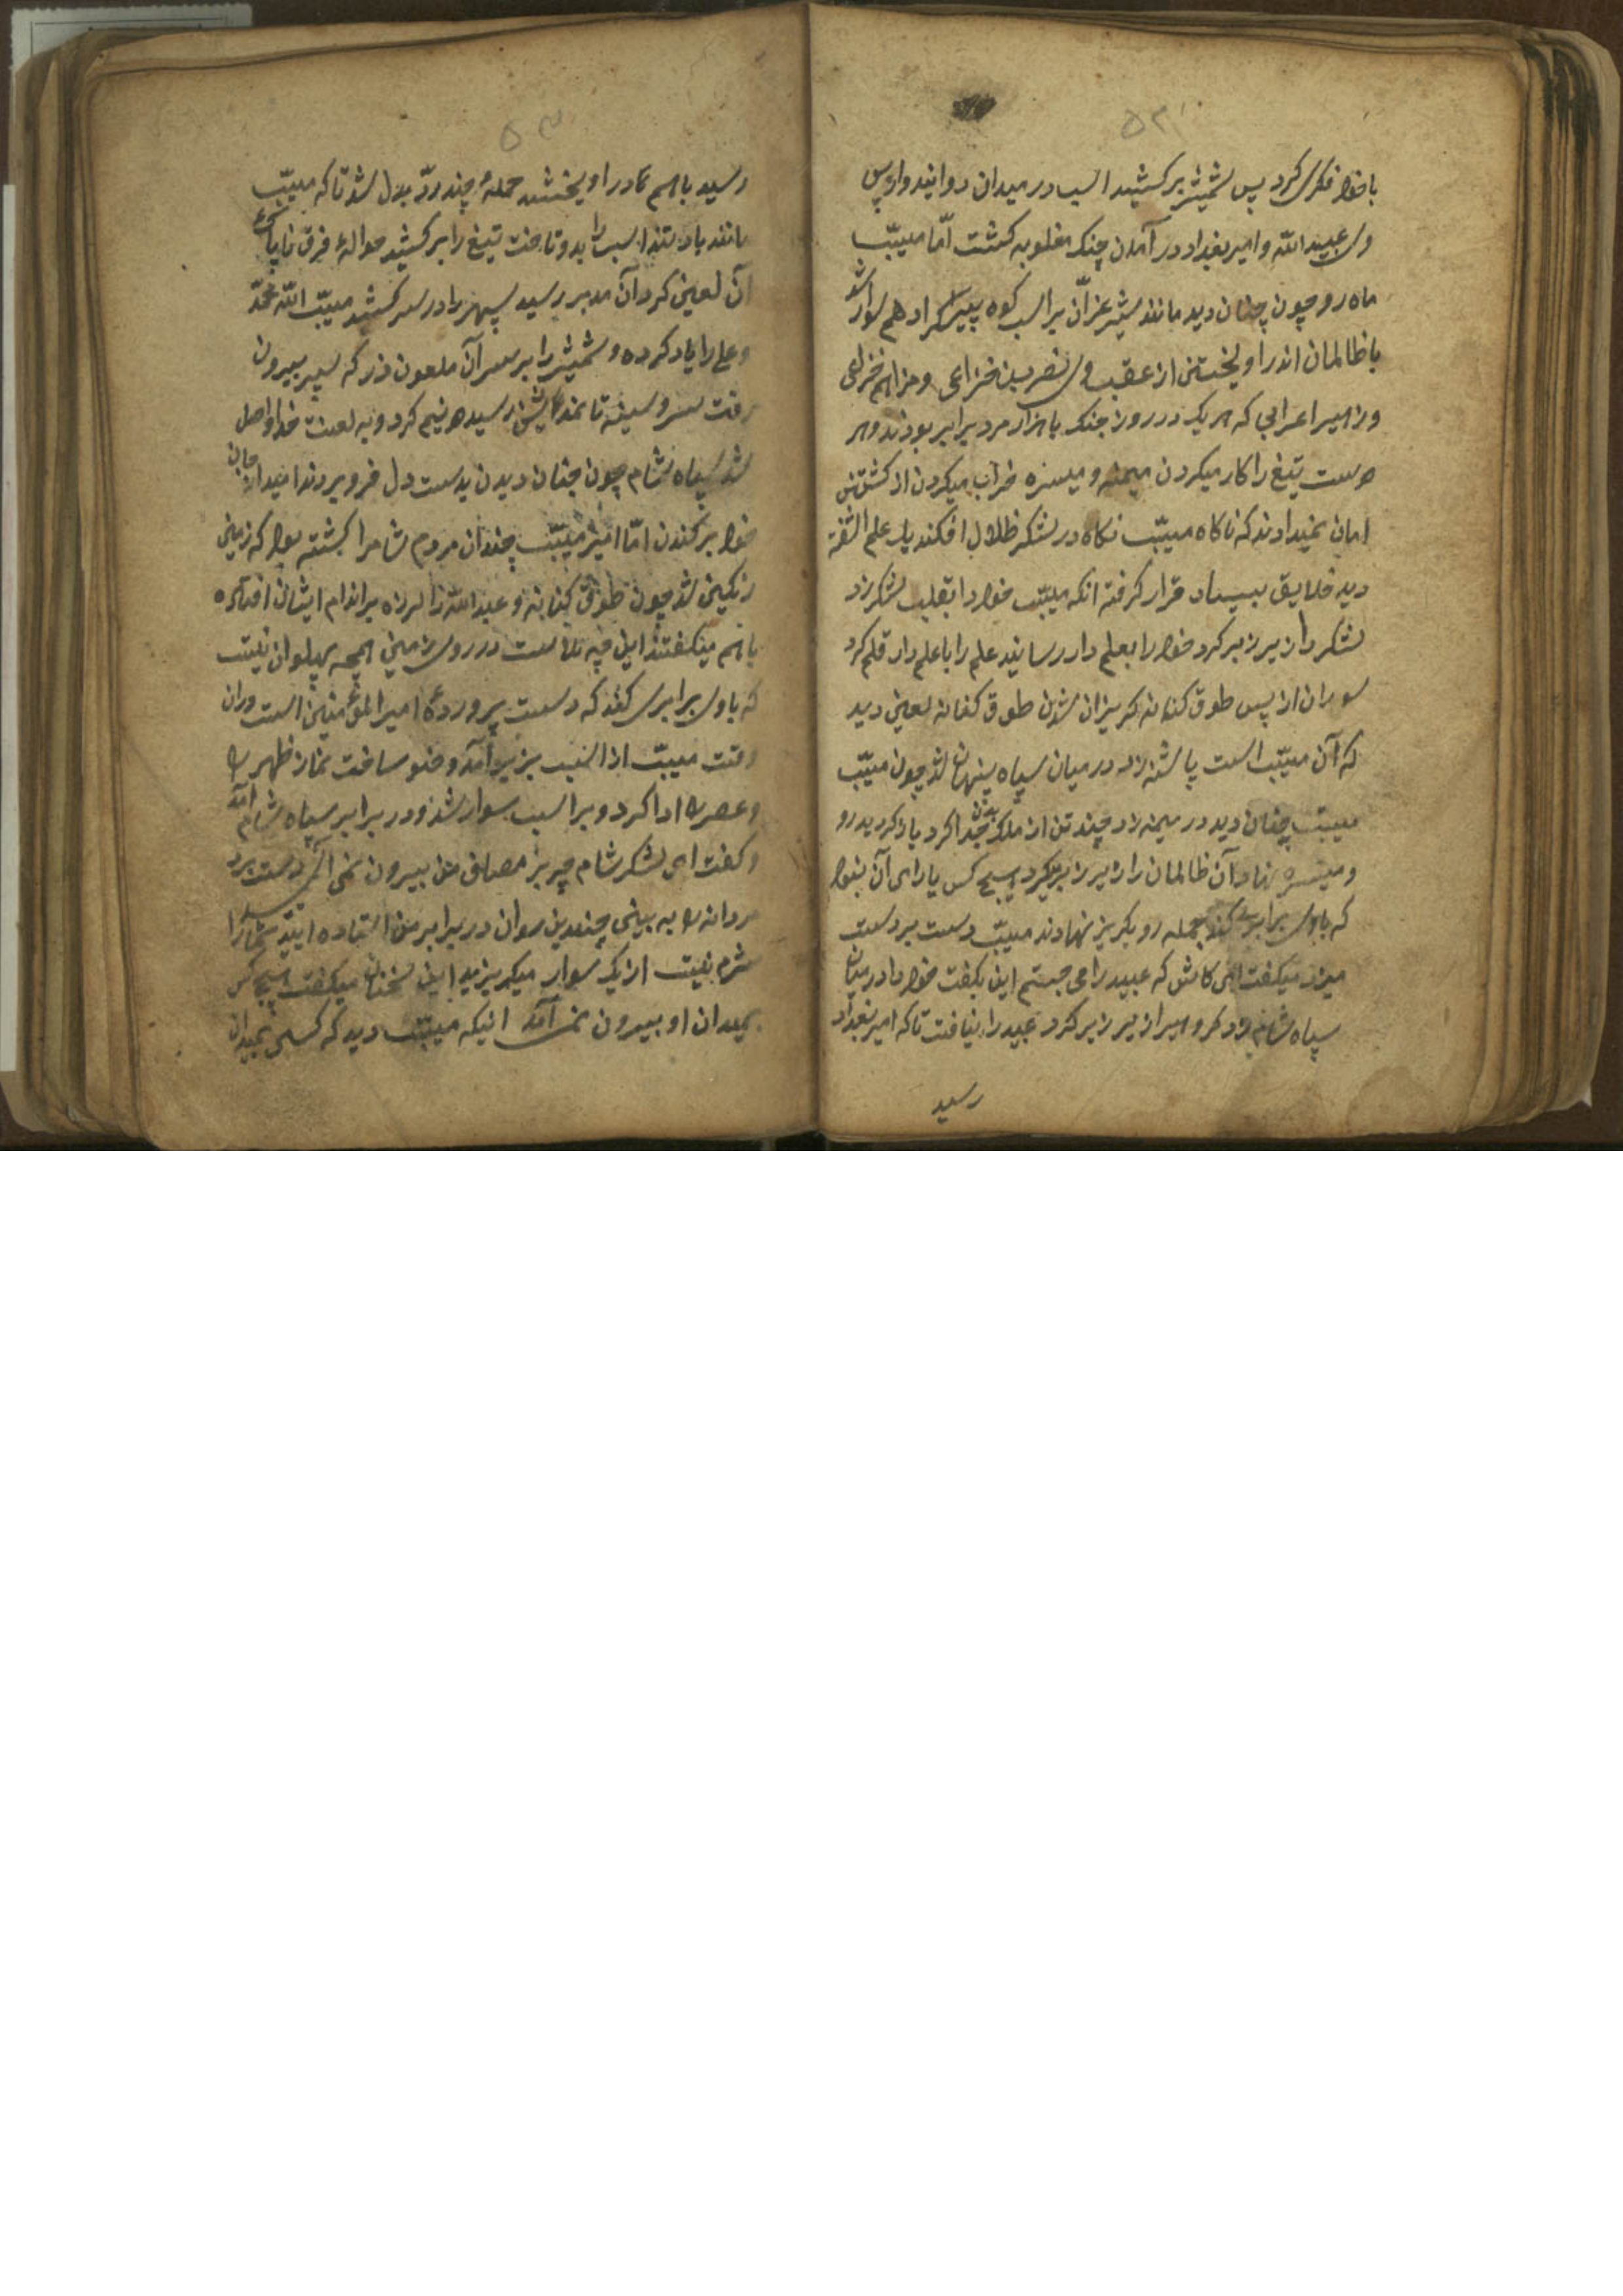 ۵۲
با خود فکری کرد پس شمشیر برکشید اسب در میدان دوانید و از پس
وی عبیدالله و امیر بغداد در آمدن جنک مغلوبه کشت امّا مسیّب
ماه رو چون چنان دید مانند شیر غرّان بر اسب کوه پیکر ادهم سوار شد
با ظالمان اندر اویختن از عقب وی نصر بن خزاعی و مزاهم خزاعی
و زهیر اعرابی که هر یک در روز جنک با هزار مرد برابر بودند و هر
دست تیغ را کار میکردن میمنه و میسره خراب میکردن از کشتن
امان نمیدادند که ناکاه مسیّب نکاه در لشکر ظلال افکند یک علم
دید خلایق بسیار قرار کرفته انکه مسیّب خود را بقلب لشکر زد
لشکر را زیر زبر کرد خود را بعلم دار رسانید علم را با علم دار قلم کرد
سواران از پس طوق کنانه کریزان شدن طوق کنانه لعین دید
که آن مسیّب است پاشنه زد در میان سپاه پنهان شد چون مسیّب
مسیّب چنان دید در میمنه زد چند تن از ملک بدن جدا کرد باز کردید رو
و میسره نهاد آن ظالمان را زیر زبر کرد هیچ کس یارای آن نبود
که باوی برابری کند جمله رو بکریز نهادند مسیّب دست بر دست
میزد میکفت ای کاش که عبید را می جستم این بکفت خود را در میان
سپاه شام زد کروهی را زیر زبر کرد عبید را نیافت تا که امیر بغداد
رسید
۵۳
رسید باهم در اویختند حملهٔ چند ردّ بدل شد تا که مسیّب
مانند باد تند اسب را بدو تاخت تیغ را برکشید حوالهٔ فرق ناپاک
آن لعین کرد آن مدبر رسید سپهر را در سر کشید مسیّب الله محمّد
و علی را یاد کرده و شمشیر را بر سر آن ملعون زد که سپر بیرون
رفت سر و سینه تا رسید دونیم کرد و به لعنت خدا واصل
شد سپاه شام چون چنان دیدن بدست دل فرو بردند امید از جان
خود برکندن امّا امیر مسیّب چندان مردم شام را کشته بود که زمین
رنکین شد چون طوق کنانه و عبدالله را لرزه بر اندام ایشان افتاده
باهم میکفتند این چه بلا ست در روی زمین همچه پهلوان نیست
که باوی برابری کند که دست پروردهٔ امیرالمؤمنین است و در ان
وقت مسیّب از اسب بزیر آمد وضو ساخت نماز ظهر را
و عصر را ادا کرد و بر اسب سوار شد و در برابر سپاه شام آمد
و کفت ای لشکر شام چرا بر مصاف من بیرون نمی آئی دست برد
مردانه را به بینی چندین سواران در برابر من استاده ایند شما را
شرم نیست از یک سوار میکریزید این سخنان میکفت هیچ کس
بمیدان او بیرون نمی آمد انیکه مسیّب دید که کسی بمیدان